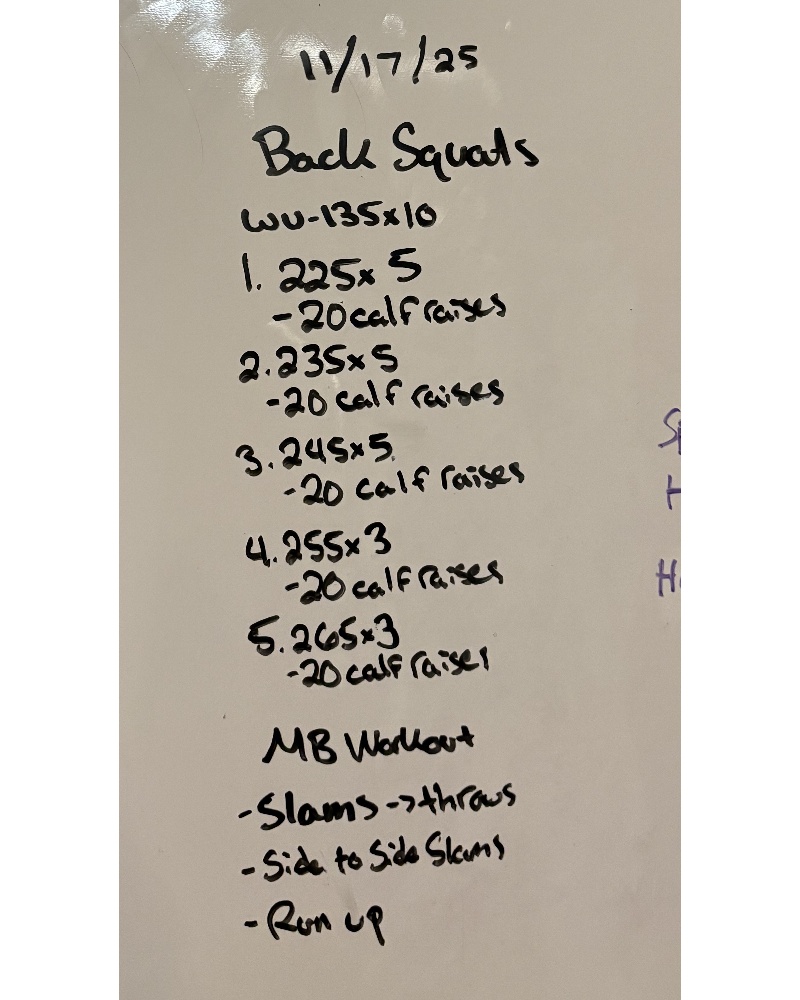 11/17/25
Back Squats
WU-135x10
1. 225x 5
-20 calf raises
2. 235x5
-20 calf raises
3. 245x5
-20 calf raises
4. 255x3
-20 calf raises
5. 265x3
-20 calf raises
MB Workout
-Slams->throws
-Side to Side Slams
-Run up